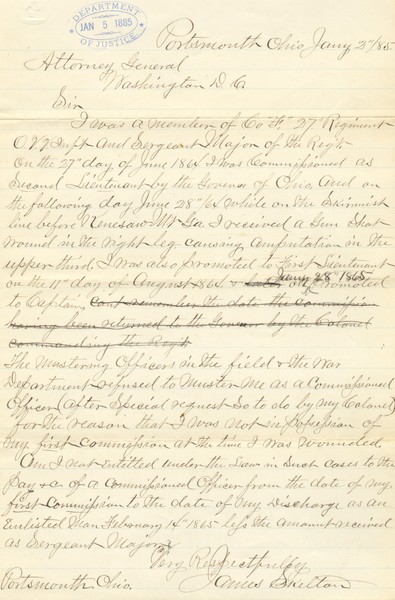 DEPARTMENT
JAN 5 1885
OF JUSTICE
Portsmouth Ohio Jany 2"/85
Attorney General
Washington D. C.
Sir
I was a member of Co "F" 27" Regiment
O.V. Inft and Sergeant Major of the Regt
On the 27" day of June 1864 I was Commissioned as
Second Lieutenant by the Govenor of Ohio and on
the following day June 28"/64 while on the Skirmist
line before Kenesaw Mt Ga. I received a Gun Shot
wound in the right leg causing amputation in the
upper third. I was also promoted to First Lieutenant
Jany 28" 1865
on the 11" day of August 1864. & on promoted
to Captain, cant remember the date the commission
having been returned to the Govenor by the Colonel
commanding the Regt
The Mustering Officers in the field & the War
Department refused to Muster me as a Commissioned
Officer (After Special request So to do by my Colonel)
for the reason that I was not in possession of
my first commission at the time I was wounded.
Am I not Entitled under the Law in Such cases to the
Pay & a. of a Commissioned Officer from the date of my
first Commission to the date of my Discharge as an
Enlisted Man February 14" 1865 less the amount received
as Sergeant Major
Very Respectfully
James Skelton
Portsmouth, Ohio.